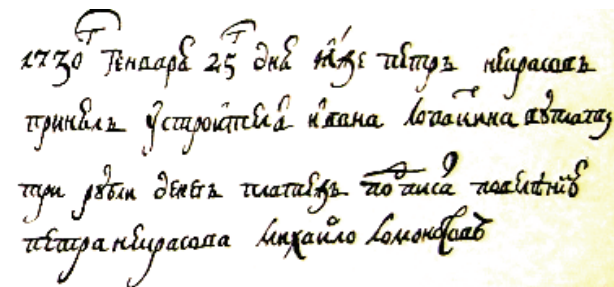 1730г Генваря 25г дня петръ некрасовъ
принелъ у строителя ивана лопаткина
три рубли денегъ платежъ подписа повелѣниѣ
петра некрасова михайло ломоносовъ